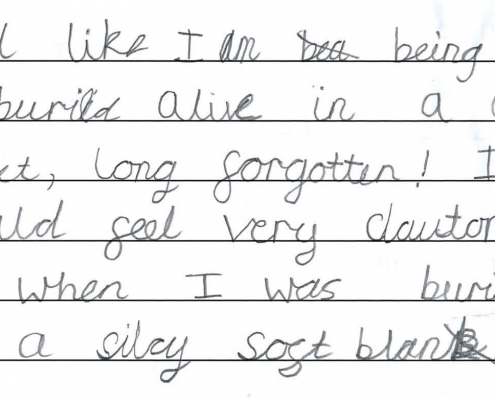 l like I am being
buried alive in a
et, long forgotten! I
uld feel very claustor
when I was buri
a silcy soft blan